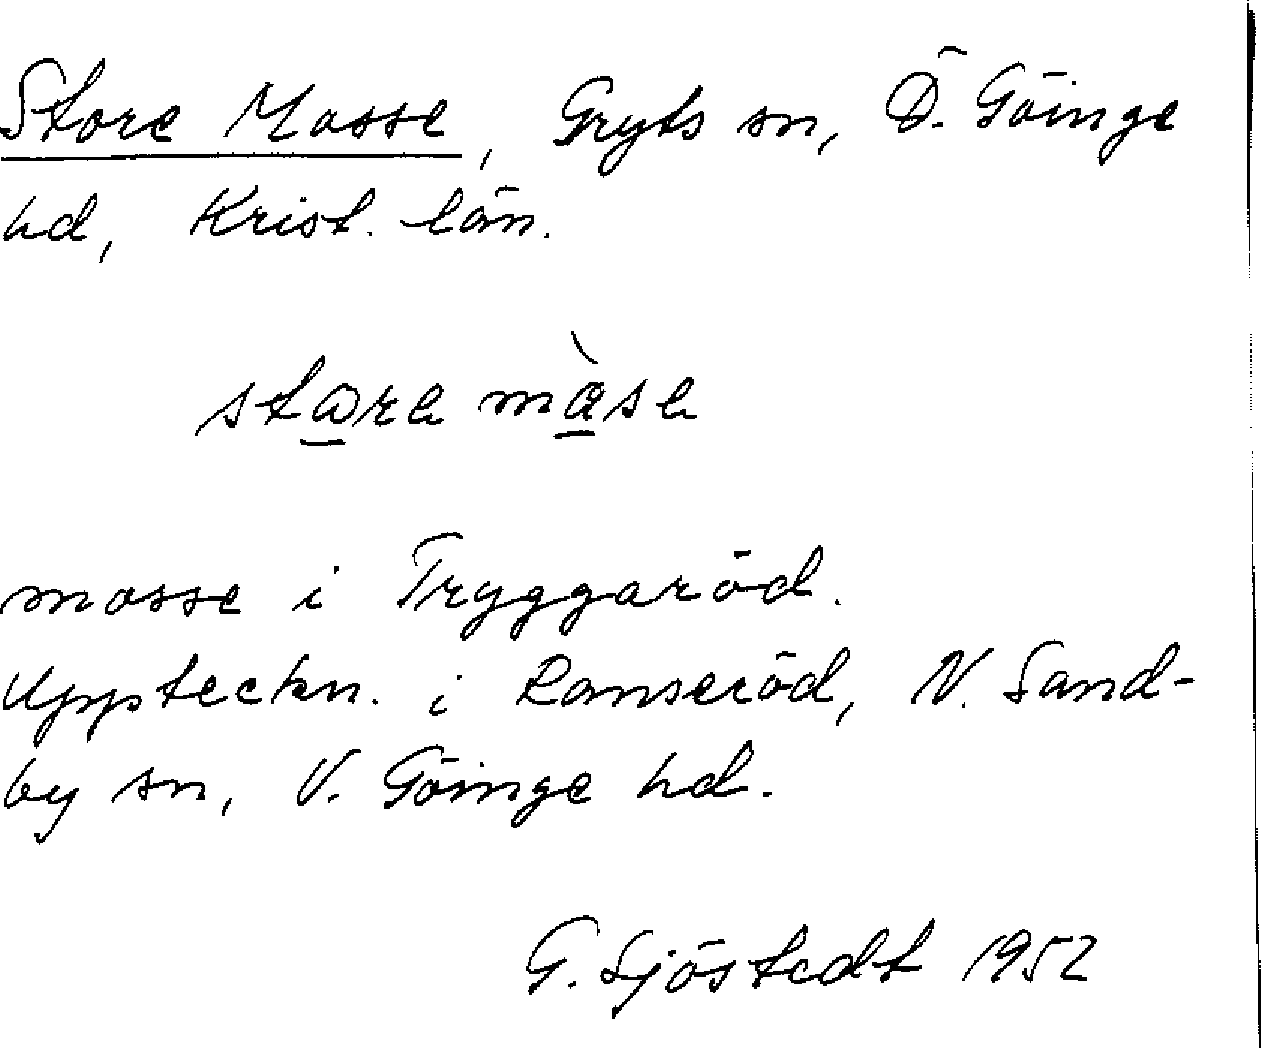 Store Mosse, Gryts sn, Ö. Göinge
hd, Krist. län.
stora måse
mosse i Tryggaröd.
Uppteckn. i Ranseröd, N. Sand-
by sn, V. Göinge hd.
G. Sjöstedt 1952